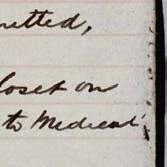 mitted,
closet on
to Medical